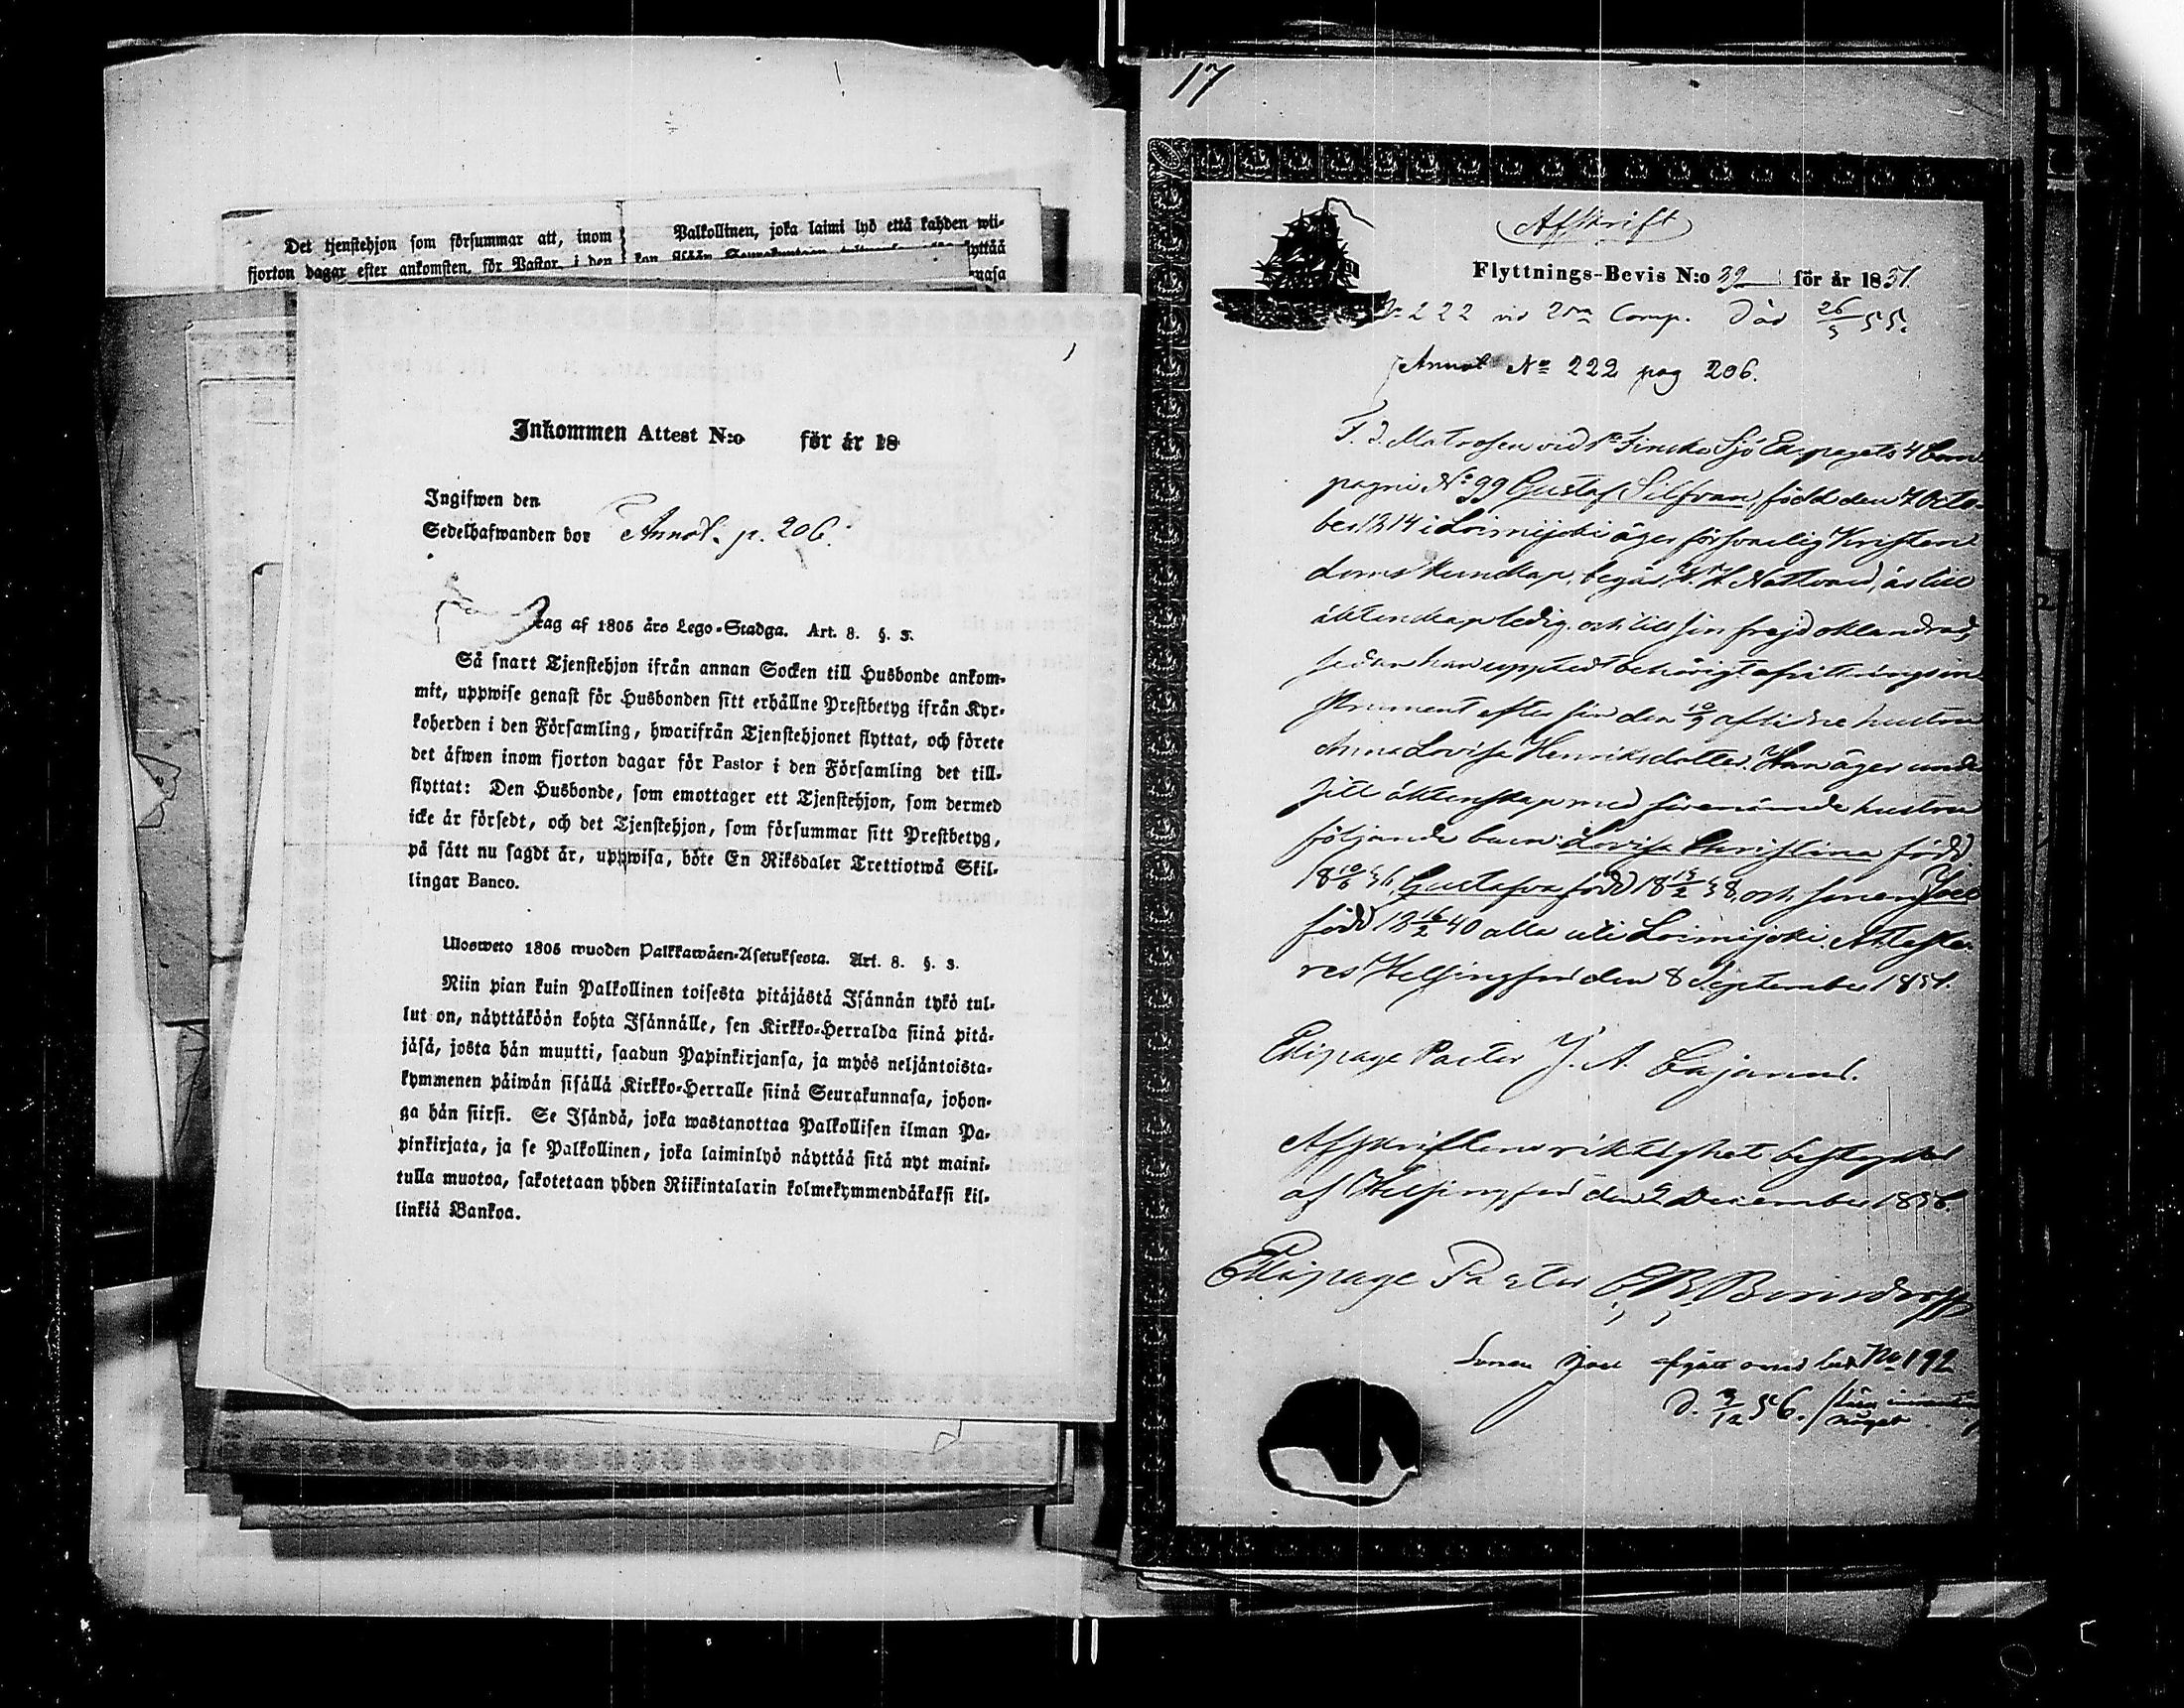 Det tjenstehjon som försummar att, inom
fjorton dagar efter ankomsten, för Pastor, i den
Palkollinen, joka laimi lyö että kahden wii-
Inkommen Attest N:o för år 18
Ingifwen den
Sedelhafwanden bor Annot. p. 206.
tag af 1805 års Lego-Stadga. Art. 8. §. 3.
Så snart Tjenstehjon ifrån annan Socken till Husbonde ankom-
mit, uppwise genast för Husbonden sitt erhållne Prestbetyg ifrån Kyr-
koherden i den Församling, hwarifrån Tjenstehjonet flyttat, och förete
det äfwen inom fjorton dagar för Pastor i den Församling det till-
flyttat: Den Husbonde, som emottager ett Tjenstehjon, som dermed
icke är försedt, och det Tjenstehjon, som försummar sitt Prestbetyg,
på sätt nu sagdt är, uppwisa, böte En Riksdaler Trettiotwå Skil-
lingar Banco.
Ulosweto 1805 wuoden Palkkawäen-Asetuksesta. Art. 8. §. 3.
Niin pian kuin Palkollinen toisesta pitäjästä Isännän tykö tul-
lut on, näyttäköön kohta Isännälle, sen Kirkko-Herralda siinä pitä-
jäsä, josta hän muutti, saadun Papinkirjansa, ja myös neljäntoista-
kymmenen päiwän sisällä Kirkko-Herralle siinä Seurakunnasa, johon-
ga hän siirsi. Se Isändä, joka wastanottaa Palkollisen ilman Pa-
pinkirjata, ja se Palkollinen, joka laiminlyö näyttää sitä nyt maini-
tulla muotoa, sakotetaan yhden Riikintalarin kolmekymmendäkaksi kil-
linkiä Bankoa.
17
Afskrift
Flyttnings-Bevis N:o 39 för år 1851.
N:o 222 vid 2dra Comp. Död 26/3 55.
Annot No 222 pag 206.
F. d. Matrosen vid 1a Finska Sjö Equipagets 4 Com-
pagni No 99 Gustaf Silfvan, född den 7 Octo-
ber 1814 i Loimijoki äger försvarlig Kristen-
doms kundskap, begår H. H. Nattvard, är till
äktenskap ledig och till sin frejd oklandrad,
sedan han uppted t behörigt afvittringsin-
strument efter sin den 10/7 aflidne hustru
Anna Lovisa Henriksdotter. Han äger under
sitt äktenskap med förenämnde hustru
följande barn: Lovisa Christina född
18 10/6 36, Gustafva född 18 13/2 38, och sonen Joel
född 18 16/2 40 alla uti Loimijoki. Atteste-
res Helsingfors den 8 September 1851.
Ekipage Pastor J. A. Cajanus.
Afskriftens riktighet bestyrkes
af Helsingfors den 2 December 1856.
Ekipage Pastor
Sonen Joel afgått med bet No 192
d. 3/12 56.